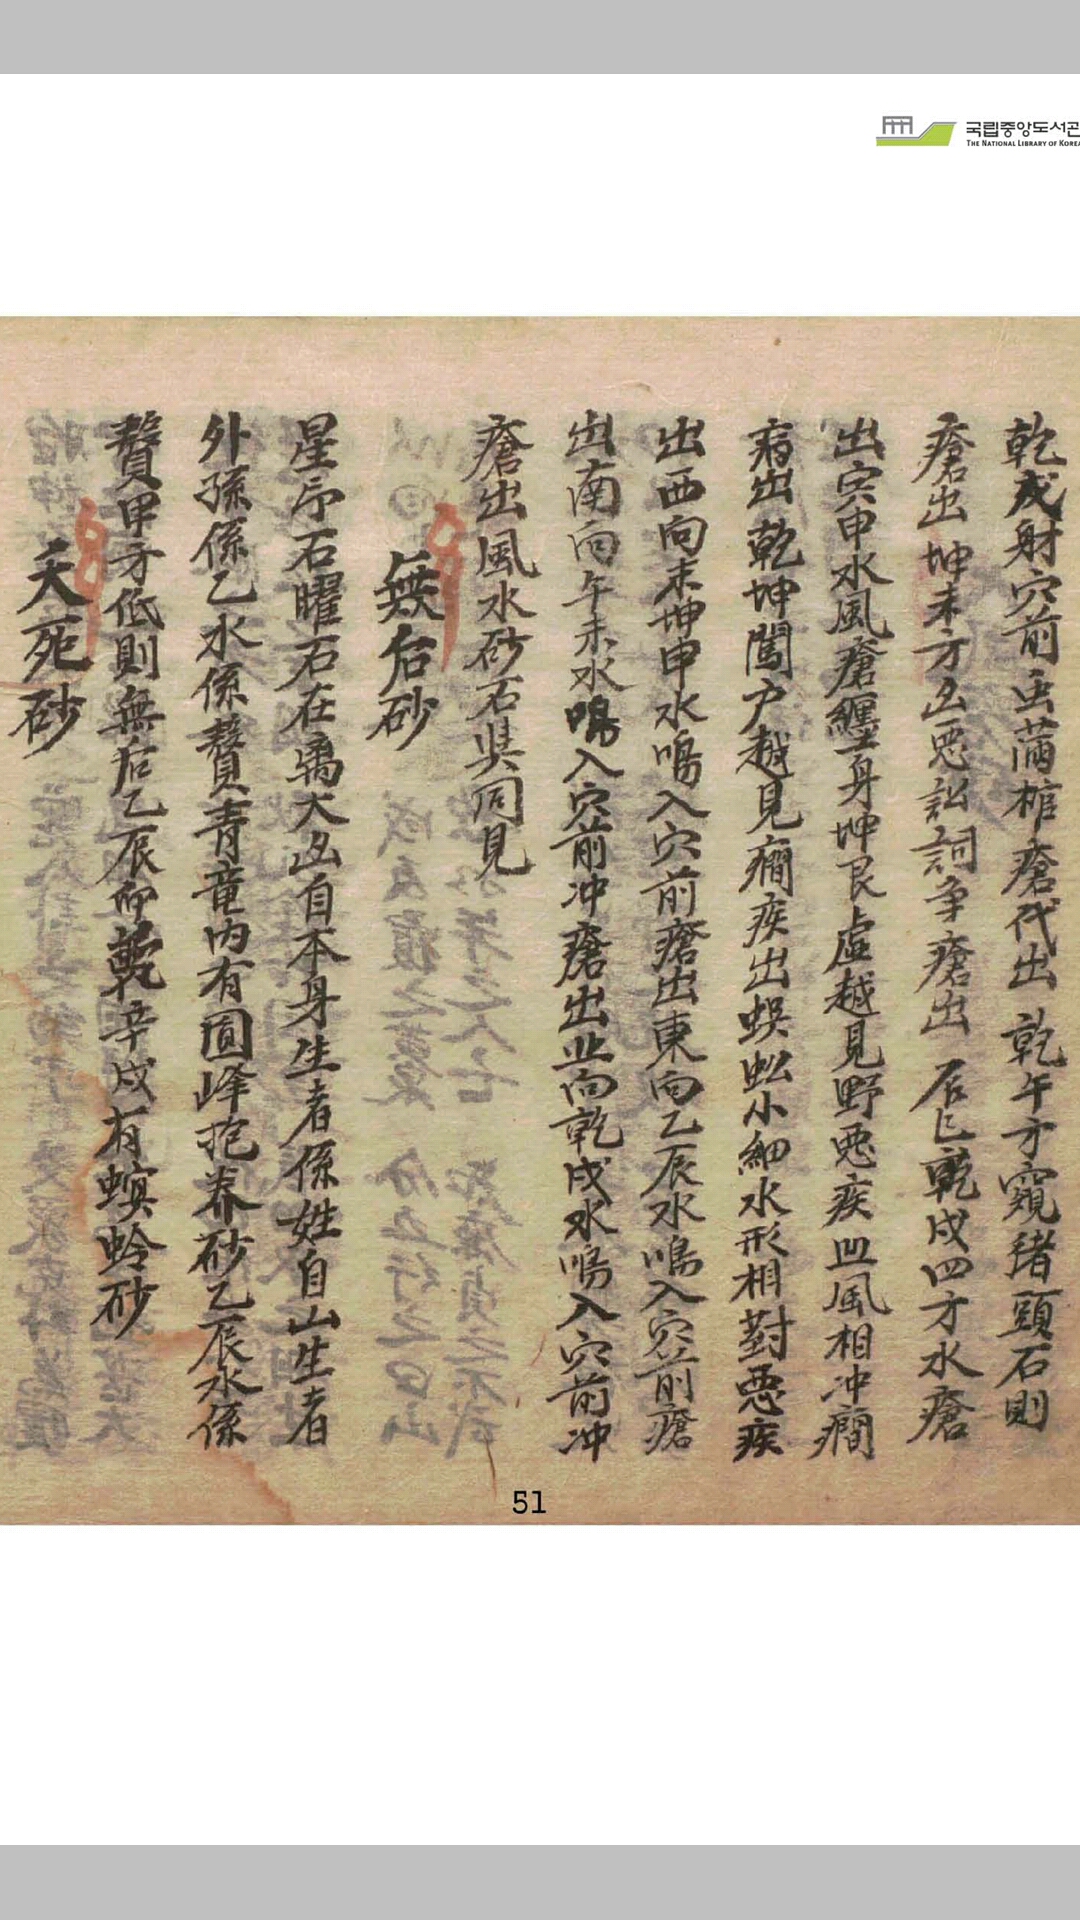 국립중앙도서관
THE NATIONAL LIBRARY OF KOREA
乾戌射穴前虫滿棺瘡代出 乾午方窺猪頭石則
瘡出坤未方 惡訟詞爭瘡出 辰巳乾戌四方水瘡
出穴申水風瘡纏身坤艮虛越見野惡疾凹風相冲癎
病出乾坤闖戶越見癎疾出蜈蚣小細水形相對惡疾
出西向未坤申水鳴入穴前瘡出東向乙辰水鳴入穴前瘡
出南向午未水鳴入穴前冲瘡出北向乾戌水鳴入穴前冲
瘡出風水砂石與同見
無后砂
星 石曜石在 大 自本身生者係姓自山生者
外孫係乙水係贅青竜内有圓峰抱养砂乙辰水係
贅甲方低則無后乙辰卯乾辛戌有螟蛉砂
夭死砂
51